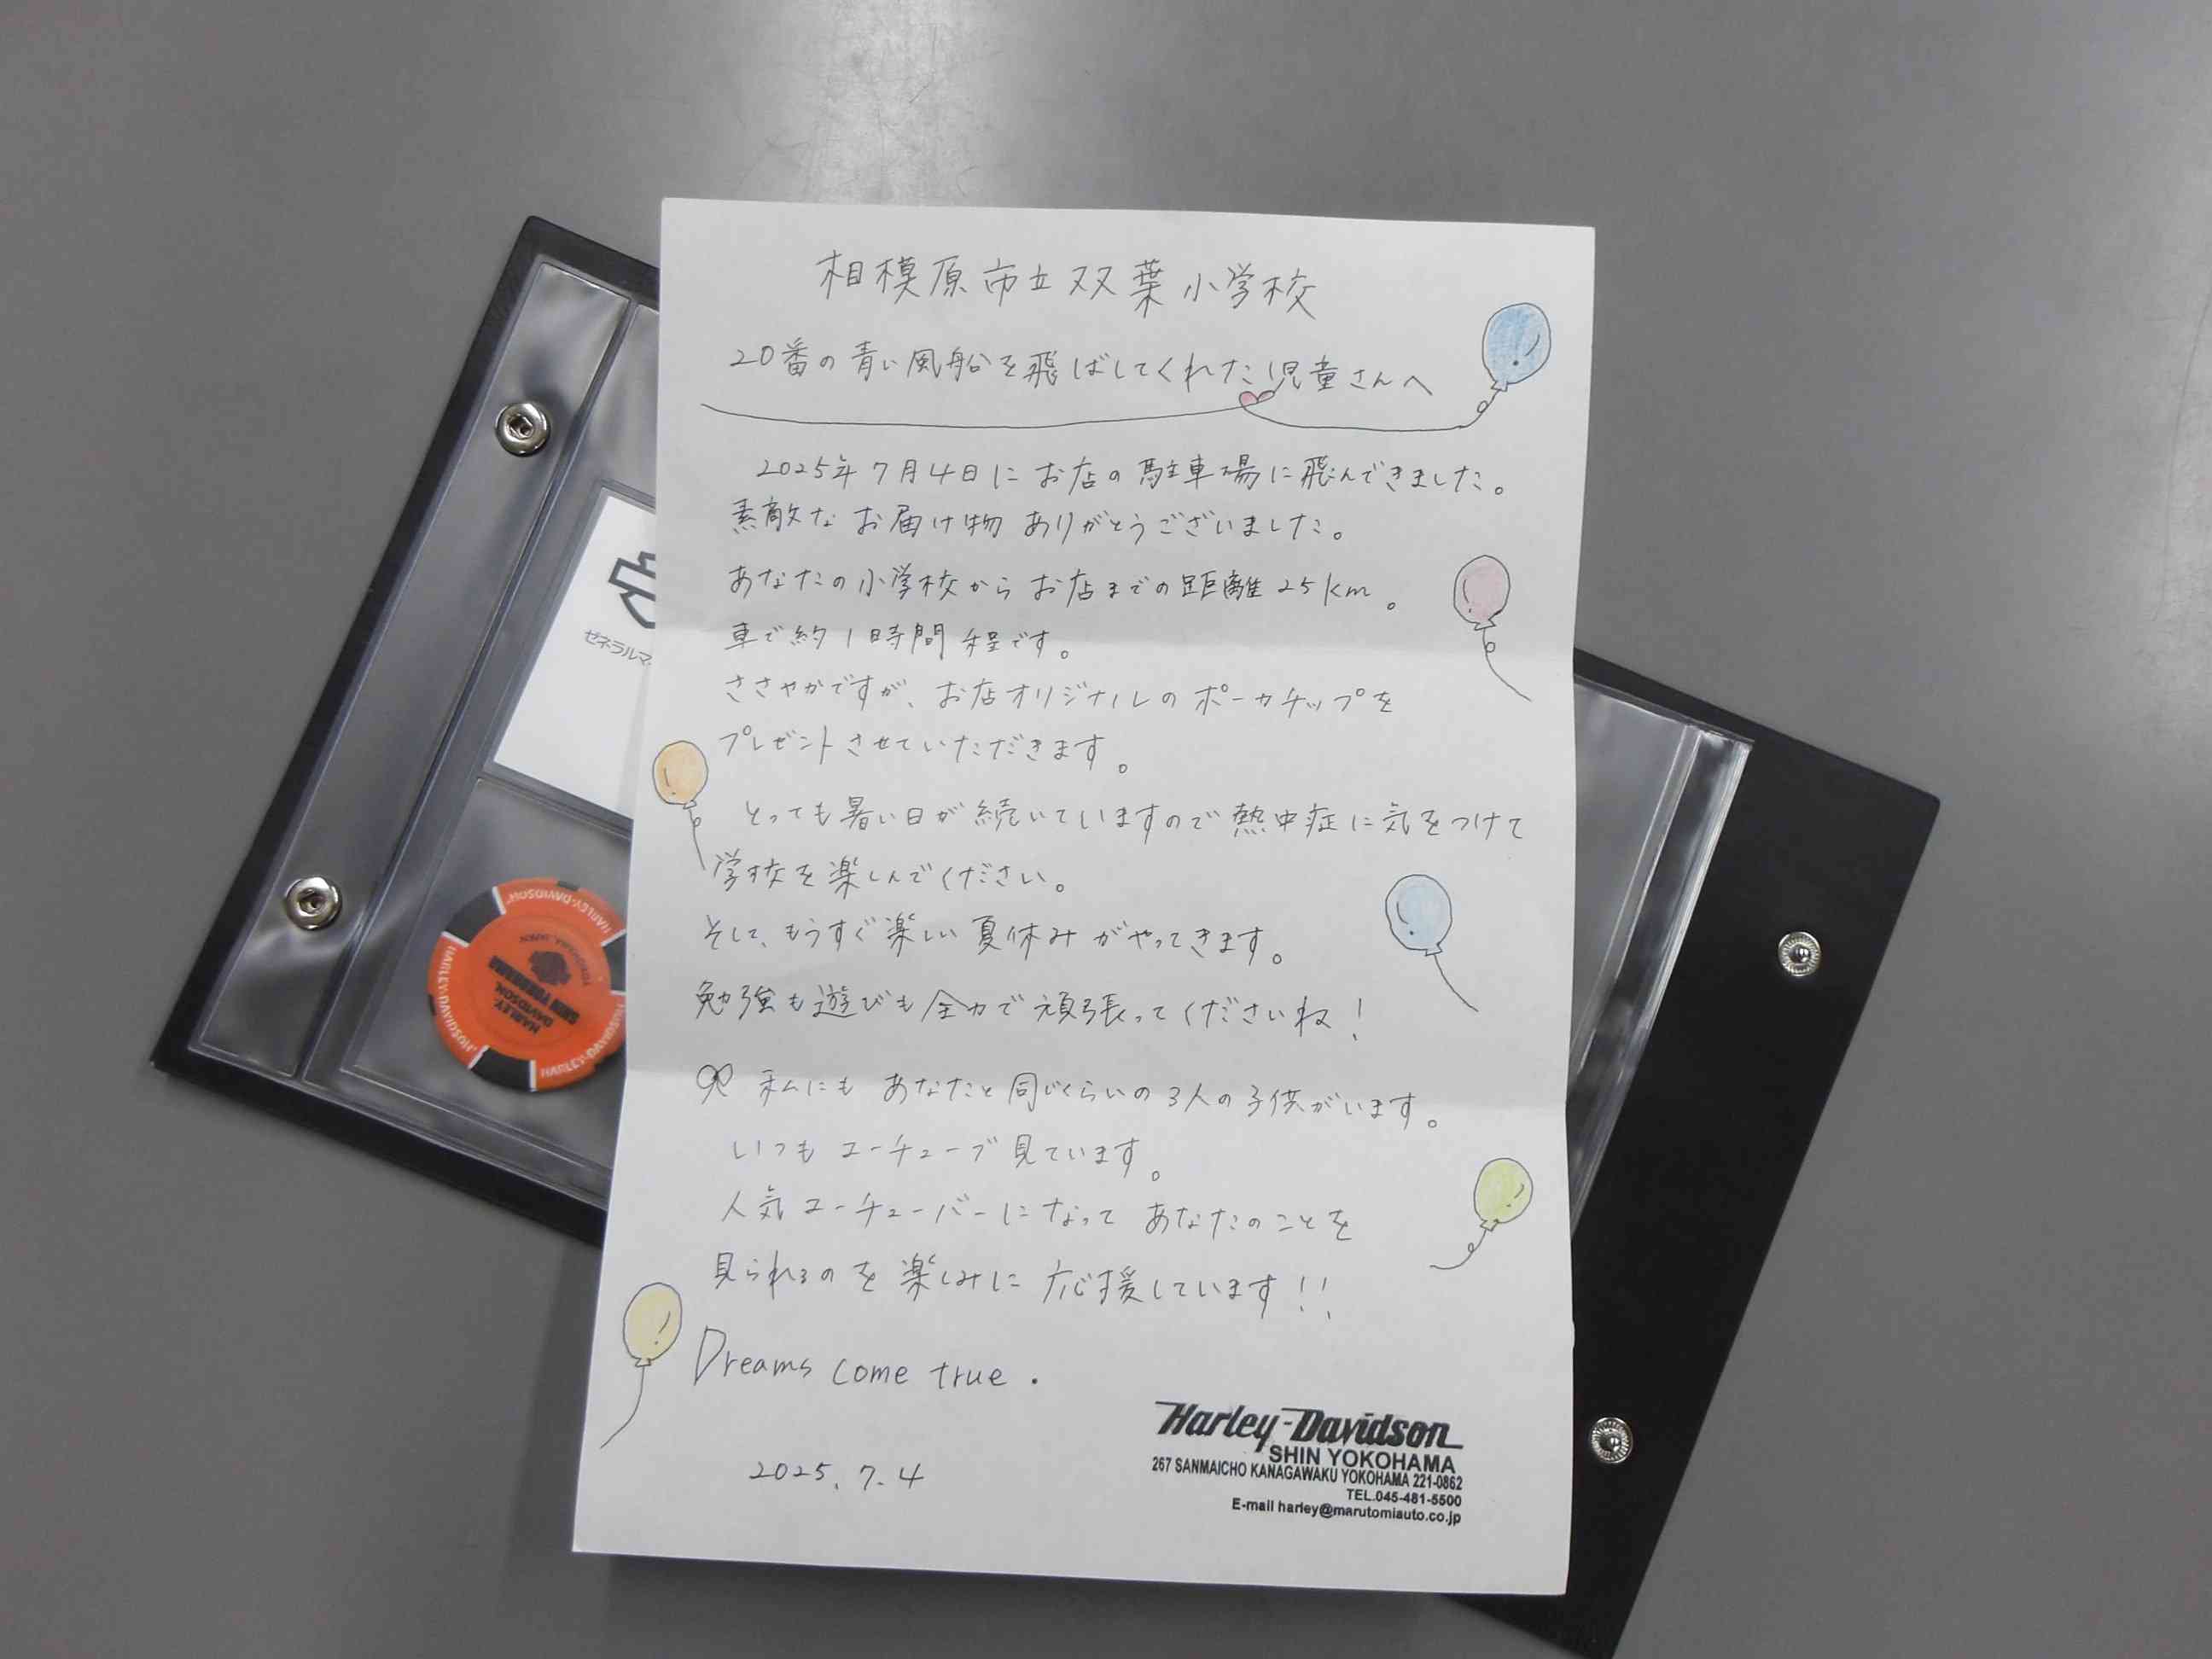 相模原市立双葉小学校
20番の青い風船を飛ばしてくれた児童さんへ
2025年7月4日にお店の駐車場に飛んできました。
素敵なお届け物ありがとうございました。
あなたの小学校からお店までの距離25km。
車で約1時間程です。
ささやかですが、お店オリジナルのポーカチップを
プレゼントさせていただきます。
とっても暑い日が続いていますので熱中症に気をつけて
学校を楽しんでください。
そして、もうすぐ楽しい夏休みがやってきます。
勉強も遊びも全力で頑張ってくださいね!
私にもあなたと同じくらいの3人の子供がいます。
いつもユーチューブ見ています。
人気ユーチューバーになってあなたのことを
見られるのを楽しみに応援しています!!
Dreams come true.
2025.7.4
Harley-Davidson
SHIN YOKOHAMA
267 SANMAICHO KANAGAWAKU YOKOHAMA 221-0862
TEL.045-481-5500
E-mail harley@marutomiauto.co.jp
ゼネラルマ
HARLEY-DAVIDSON
YOKOHAMA JAPAN
HARLEY-DAVIDSON
SHIN YOKOHAMA
HARLEY-DAVIDSON
HARLEY-DAVIDSON